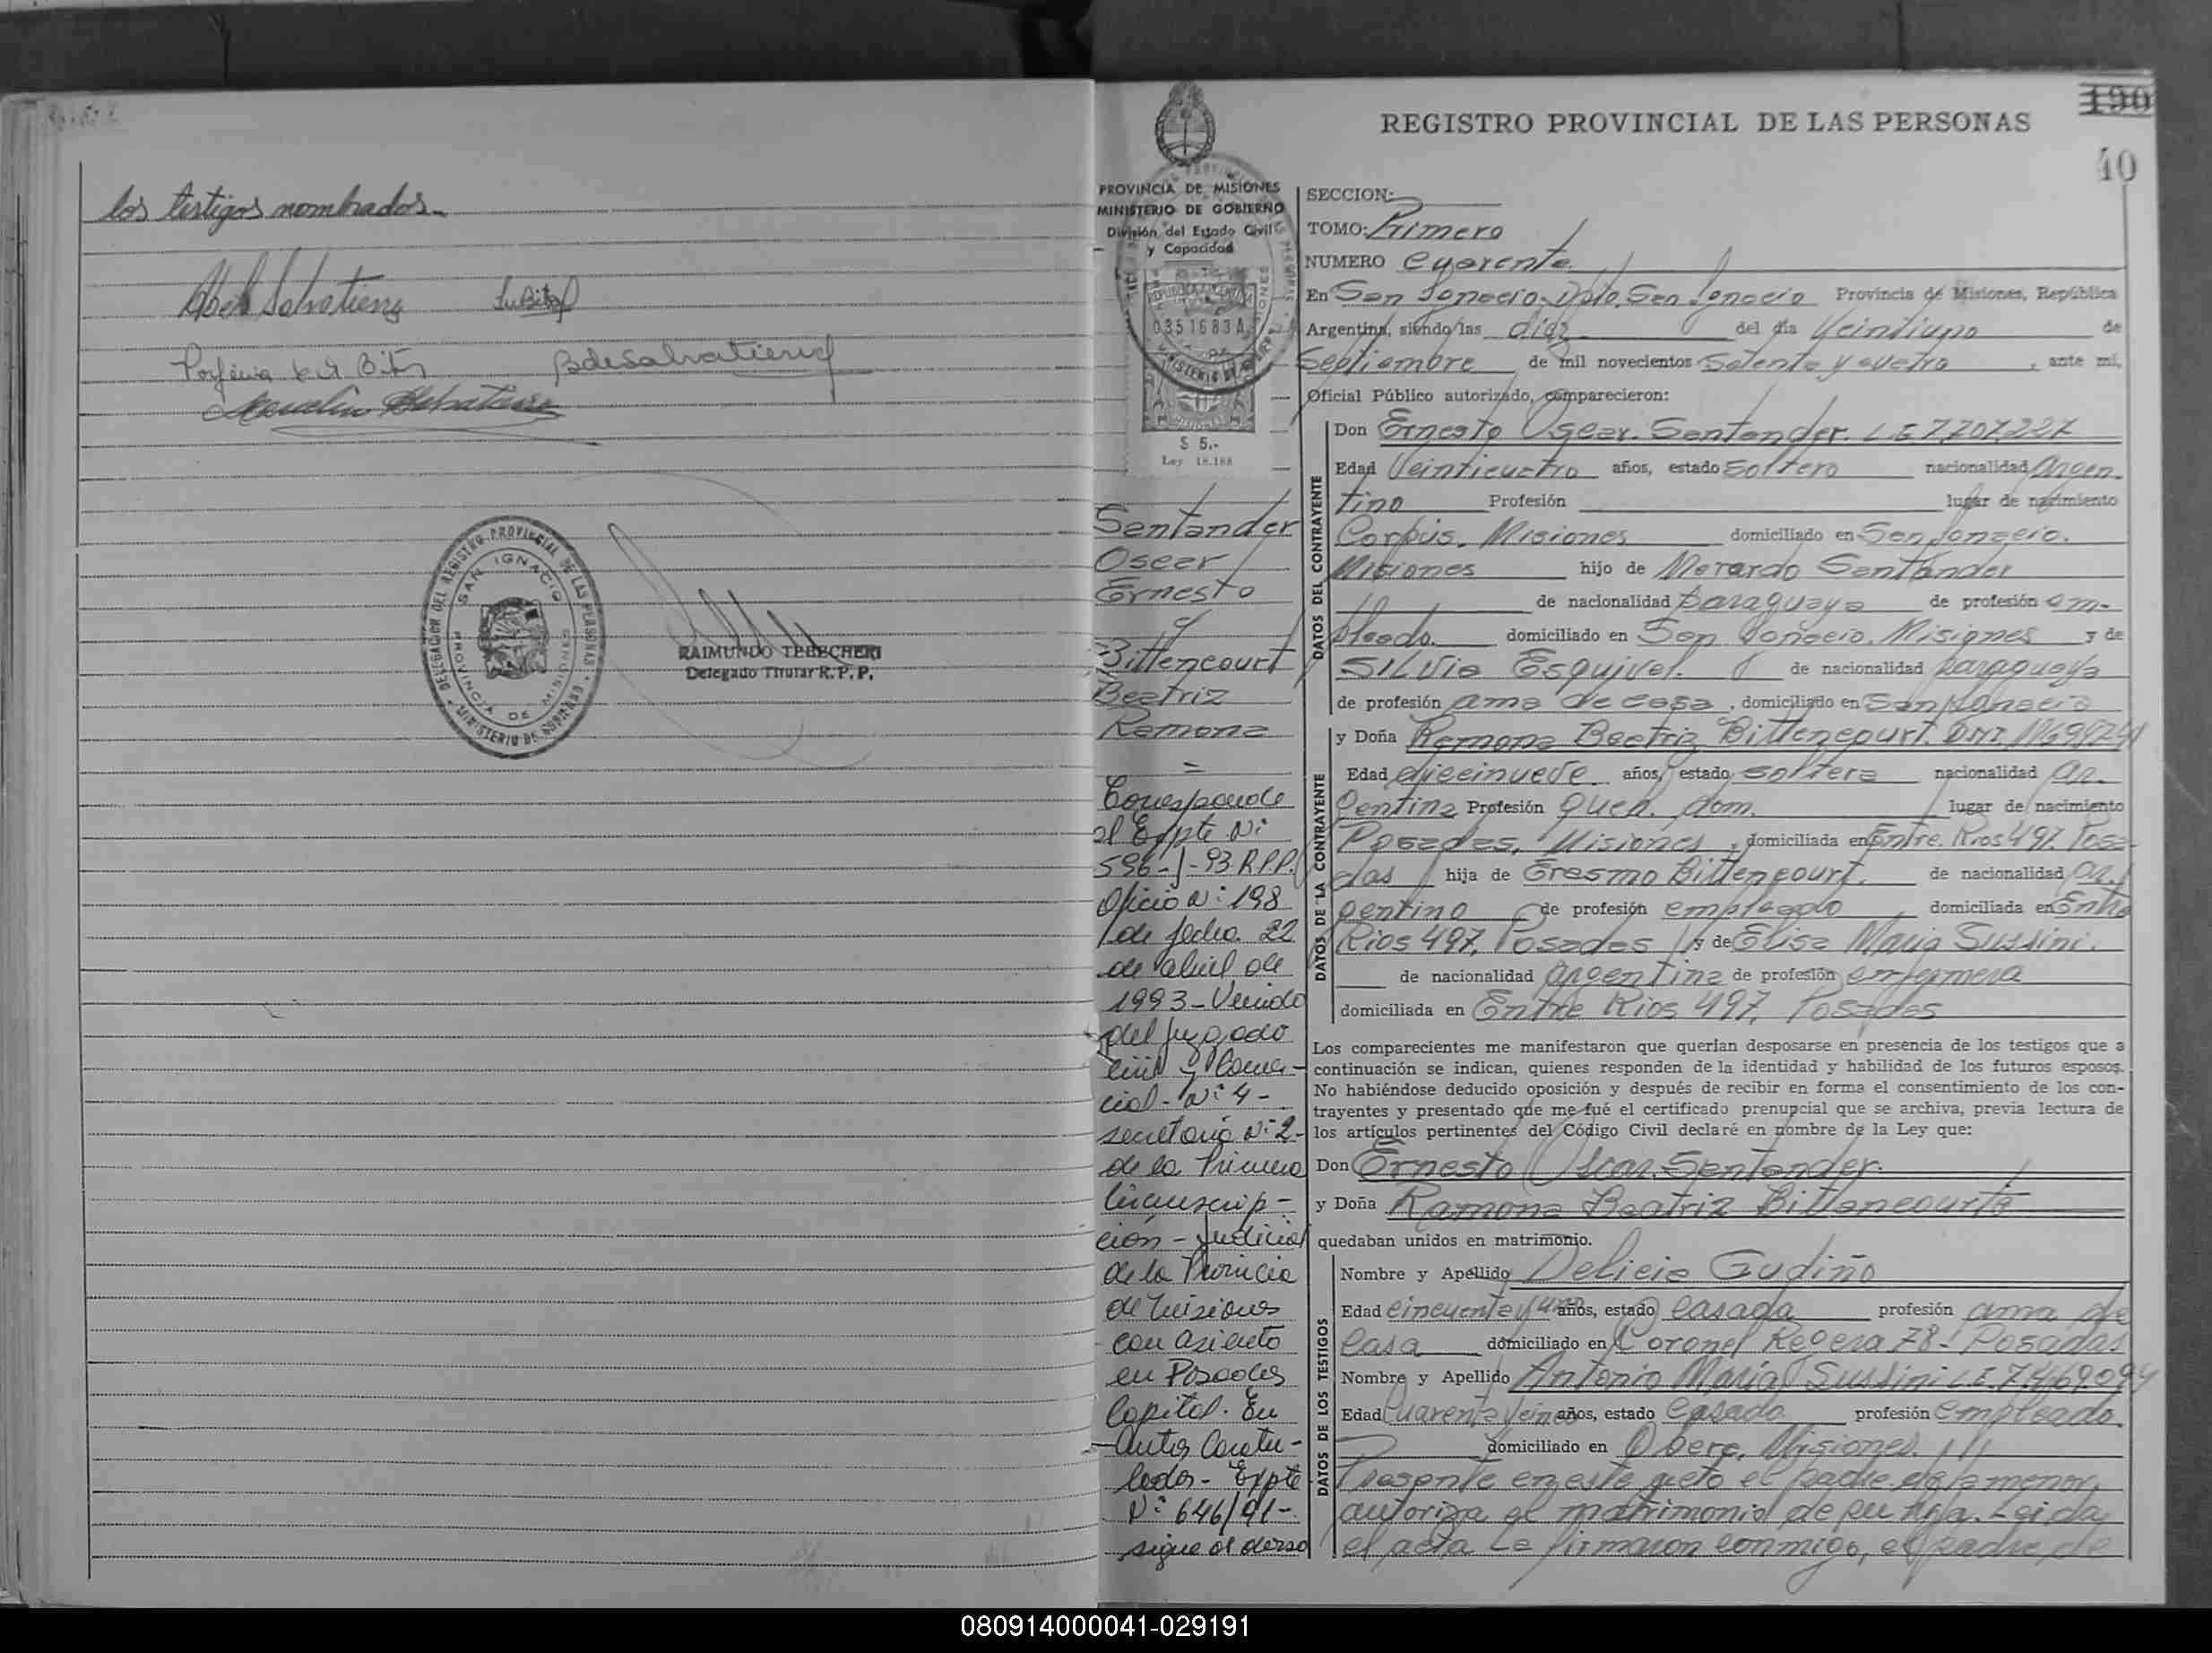 los testigos nombrados.-
Abel Salvatierra
BdeSalvatierra
DELEGACION DEL REGISTRO PROVINCIAL DE LAS PERSONAS
SAN IGNACIO
PROVINCIA DE MISIONES
MINISTERIO DE GOBIERNO
RAIMUNDO TEBECHERI
Delegado Titular R.P.P.
190
REGISTRO PROVINCIAL DE LAS PERSONAS
40
PROVINCIA DE MISIONES
MINISTERIO DE GOBIERNO
División del Estado Civil
y Capacidad
0351683A
$ 5.-
Ley 18.188
Santander
Oscar
Ernesto
y
Bittencourt
Beatriz
Ramona
=
Corresponde
al Expte Nº
596-J-93 R.P.P.
Oficio Nº 198
de fecha 22
de abril de
1993-Venido
del Juzgado
Civil y Comer-
cial-Nº 4-
secretaria Nº 2-
de la Primera
Circunscrip-
ción-Judicial
de la Provincia
de Misiones
con asiento
en Posadas
Capital. En
Autos Caratu-
lados-Expte
Nº 646/91-
sigue al dorso
SECCION:
TOMO: Primero
NUMERO Cuarenta
En San Ignacio, Dpto. San Ignacio Provincia de Misiones, República
Argentina, siendo las diez del día Veintiuno de
Septiembre de mil novecientos Setenta y cuatro, ante mí,
Oficial Público autorizado, comparecieron:
DATOS DEL CONTRAYENTE
Don Ernesto Oscar Santander. L.E 7.707.227
Edad Veinticuatro años, estado soltero nacionalidad Argen-
tino Profesión lugar de nacimiento
Corpus, Misiones domiciliado en San Ignacio.
Misiones hijo de Merardo Santander
de nacionalidad paraguaya de profesión em-
pleado. domiciliado en San Ignacio, Misiones y de
SILVIA Esquivel. de nacionalidad paraguaya
de profesión ama de casa, domiciliado en San Ignacio
DATOS DE LA CONTRAYENTE
y Doña Ramona Beatriz Bittencourt. DNI.
Edad diecinueve años, estado soltera nacionalidad ar-
gentina Profesión queh. dom. lugar de nacimiento
Posadas, Misiones, domiciliada en Entre Rios 497. Posa-
das hija de Erasmo Bittencourt. de nacionalidad ar-
gentino de profesión empleado domiciliada en Entre
Rios 497, Posadas y de Elisa Maria Sussini.
de nacionalidad argentina de profesión enfermera
domiciliada en Entre Rios 497, Posadas
Los comparecientes me manifestaron que querían desposarse en presencia de los testigos que a
continuación se indican, quienes responden de la identidad y habilidad de los futuros esposos.
No habiéndose deducido oposición y después de recibir en forma el consentimiento de los con-
trayentes y presentado que me fué el certificado prenupcial que se archiva, previa lectura de
los artículos pertinentes del Código Civil declaré en nombre de la Ley que:
Don Ernesto Oscar Santander.
y Doña Ramona Beatriz Bittencourt
quedaban unidos en matrimonio.
DATOS DE LOS TESTIGOS
Nombre y Apellido Delicia Gudiño
Edad cincuenta y uno años, estado casada profesión ama de
casa domiciliado en Coronel Reguera 78-Posadas
Nombre y Apellido Antonio María Sussini L.E. 7.469.094
Edad Cuarenta y cinco años, estado casado profesión empleado
domiciliado en Obera, Misiones.
Presente en este acto el padre de la menor,
autoriza el matrimonio de su hija. Leida
el acta la firmaron conmigo, el padre de
080914000041-029191